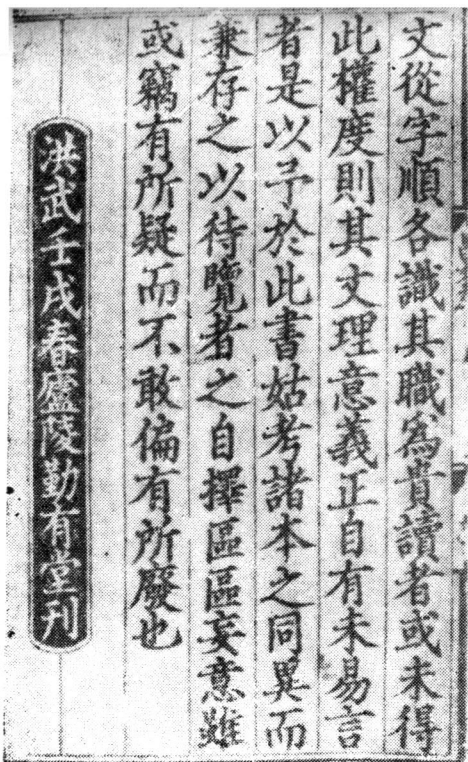 文從字順各識其職爲貴讀者或未得
此權度則其文理意義正自有未易言
者是以予於此書姑考諸本之同異而
兼存之以待覽者之自擇區區妄意雖
或竊有所疑而不敢偏有所廢也
洪武壬戌春廬陵勤有堂刊